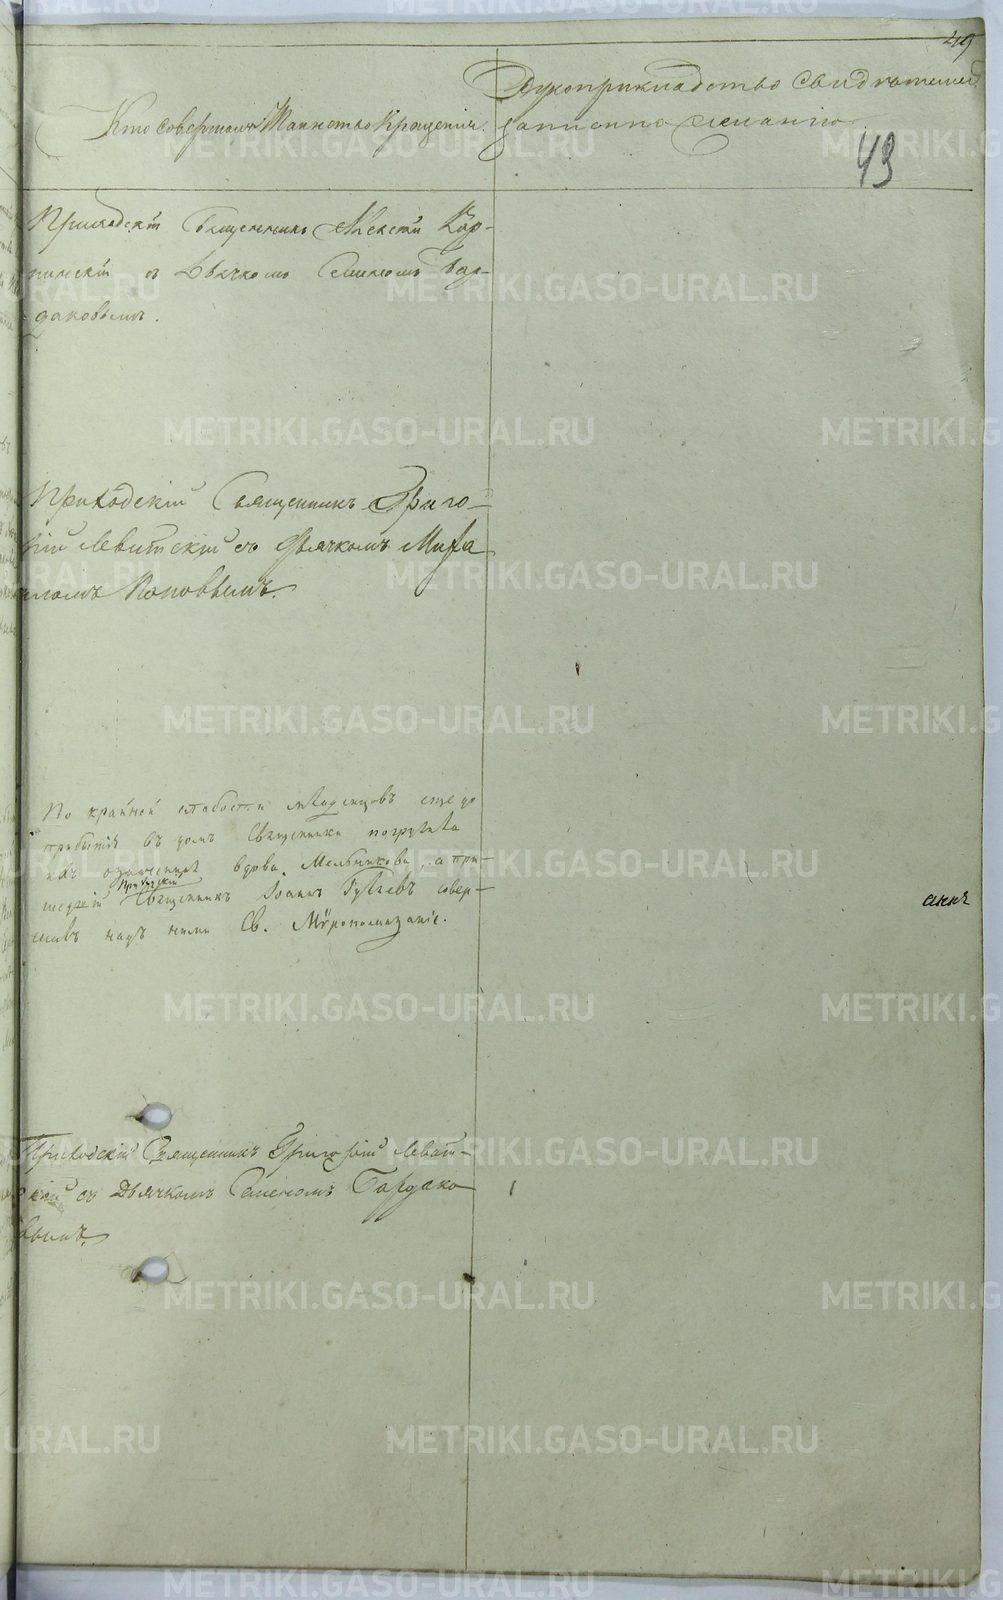 49
Рукоприкладство свидѣтелей
Кто совершалъ Таинство Крещенія.
записанію по желанію
43
Приходскій Священникъ Алексѣй Кор-
пинскій съ Дьячкомъ Семеномъ Бар-
даковымъ.
Приходскій Священникъ Григо-
рій Левитскій съ Дьячкомъ Миха
иломъ Поповымъ.
По крайней слабости младенцовъ еще до
прибытія въ домъ Священника погружала
ихъ означенная вдова Мельникова, а при-
шедшій Приходскій Священникъ Іоаннъ Гуляевъ совер-
шивъ надъ ними Св. Мѵропомазаніе.
Приходскій Священникъ Григорій Левит-
скій съ Дьячкомъ Семеномъ Бардако
вымъ.
METRIKI.GASO-URAL.RU